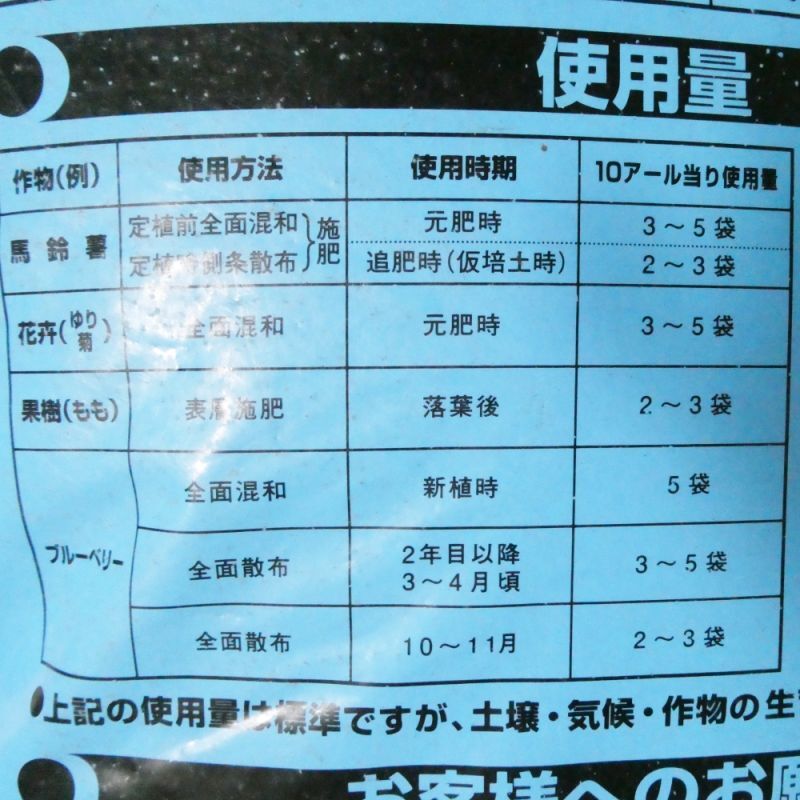 使用量
作物(例) 使用方法 使用時期 10アール当り使用量
馬鈴薯 定植前全面混和 施肥 元肥時 3～5袋
定植時側条散布 追肥時(仮培土時) 2～3袋
花卉(ゆり 菊) 全面混和 元肥時 3～5袋
果樹(もも) 表層施肥 落葉後 2～3袋
ブルーベリー 全面混和 新植時 5袋
全面散布 2年目以降
3～4月頃 3～5袋
全面散布 10～11月 2～3袋
●上記の使用量は標準ですが、土壌・気候・作物の生
お客様へのお願